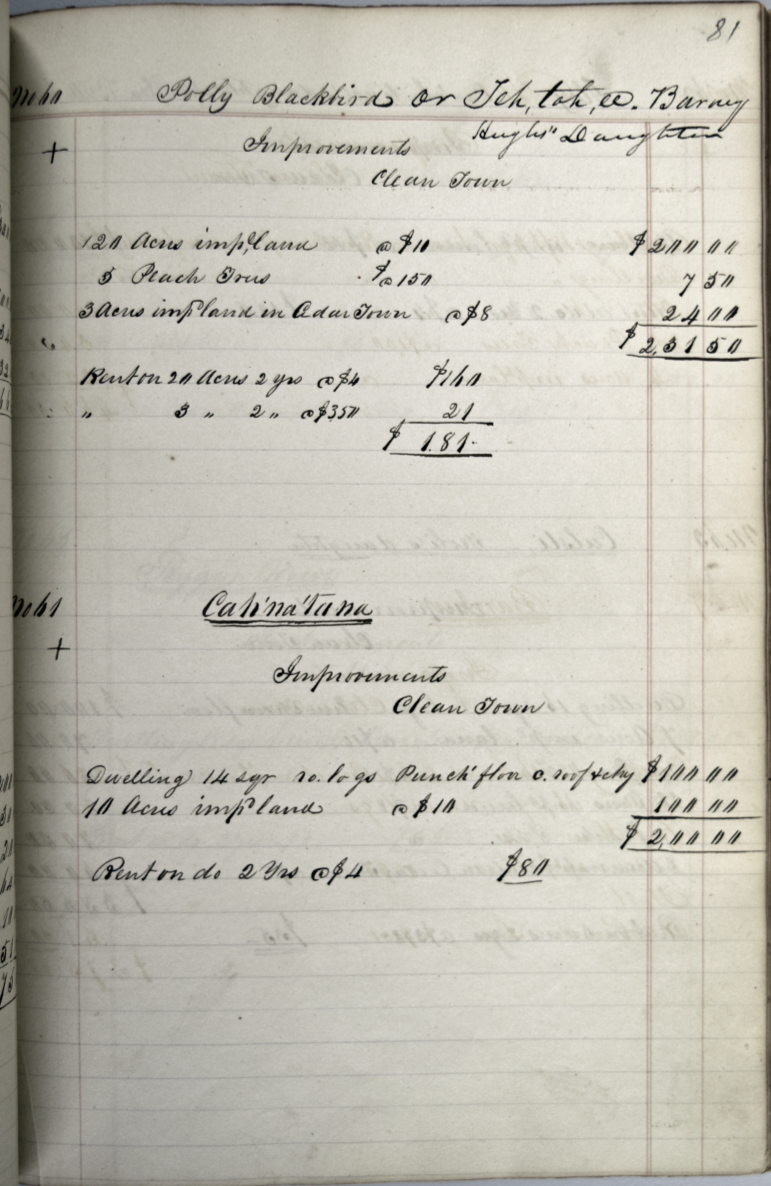 81
No 60 Polly Blackbird or Teh,toh,ee. Barney
Hughs" Daughter
+ Improvements
Clean Town
20 Acres impd land @ $10 $200 00
5 Peach Trees @ $150 7 50
3 Acres impd land in Cedar Town @ $8 24 00
$231 50
Rent on 20 Acres 2 yrs @ $4 $160
" 3 " 2 " @ $350 21
$181-
No 61 Cah'na'tana
+ Improvements
Clean Town
Dwelling 14 sqr ro. logs Punch' floor c. roof & chy $100 00
10 Acres impd land @ $10 100 00
$200 00
Rent on do 2 Yrs @ $4 $80